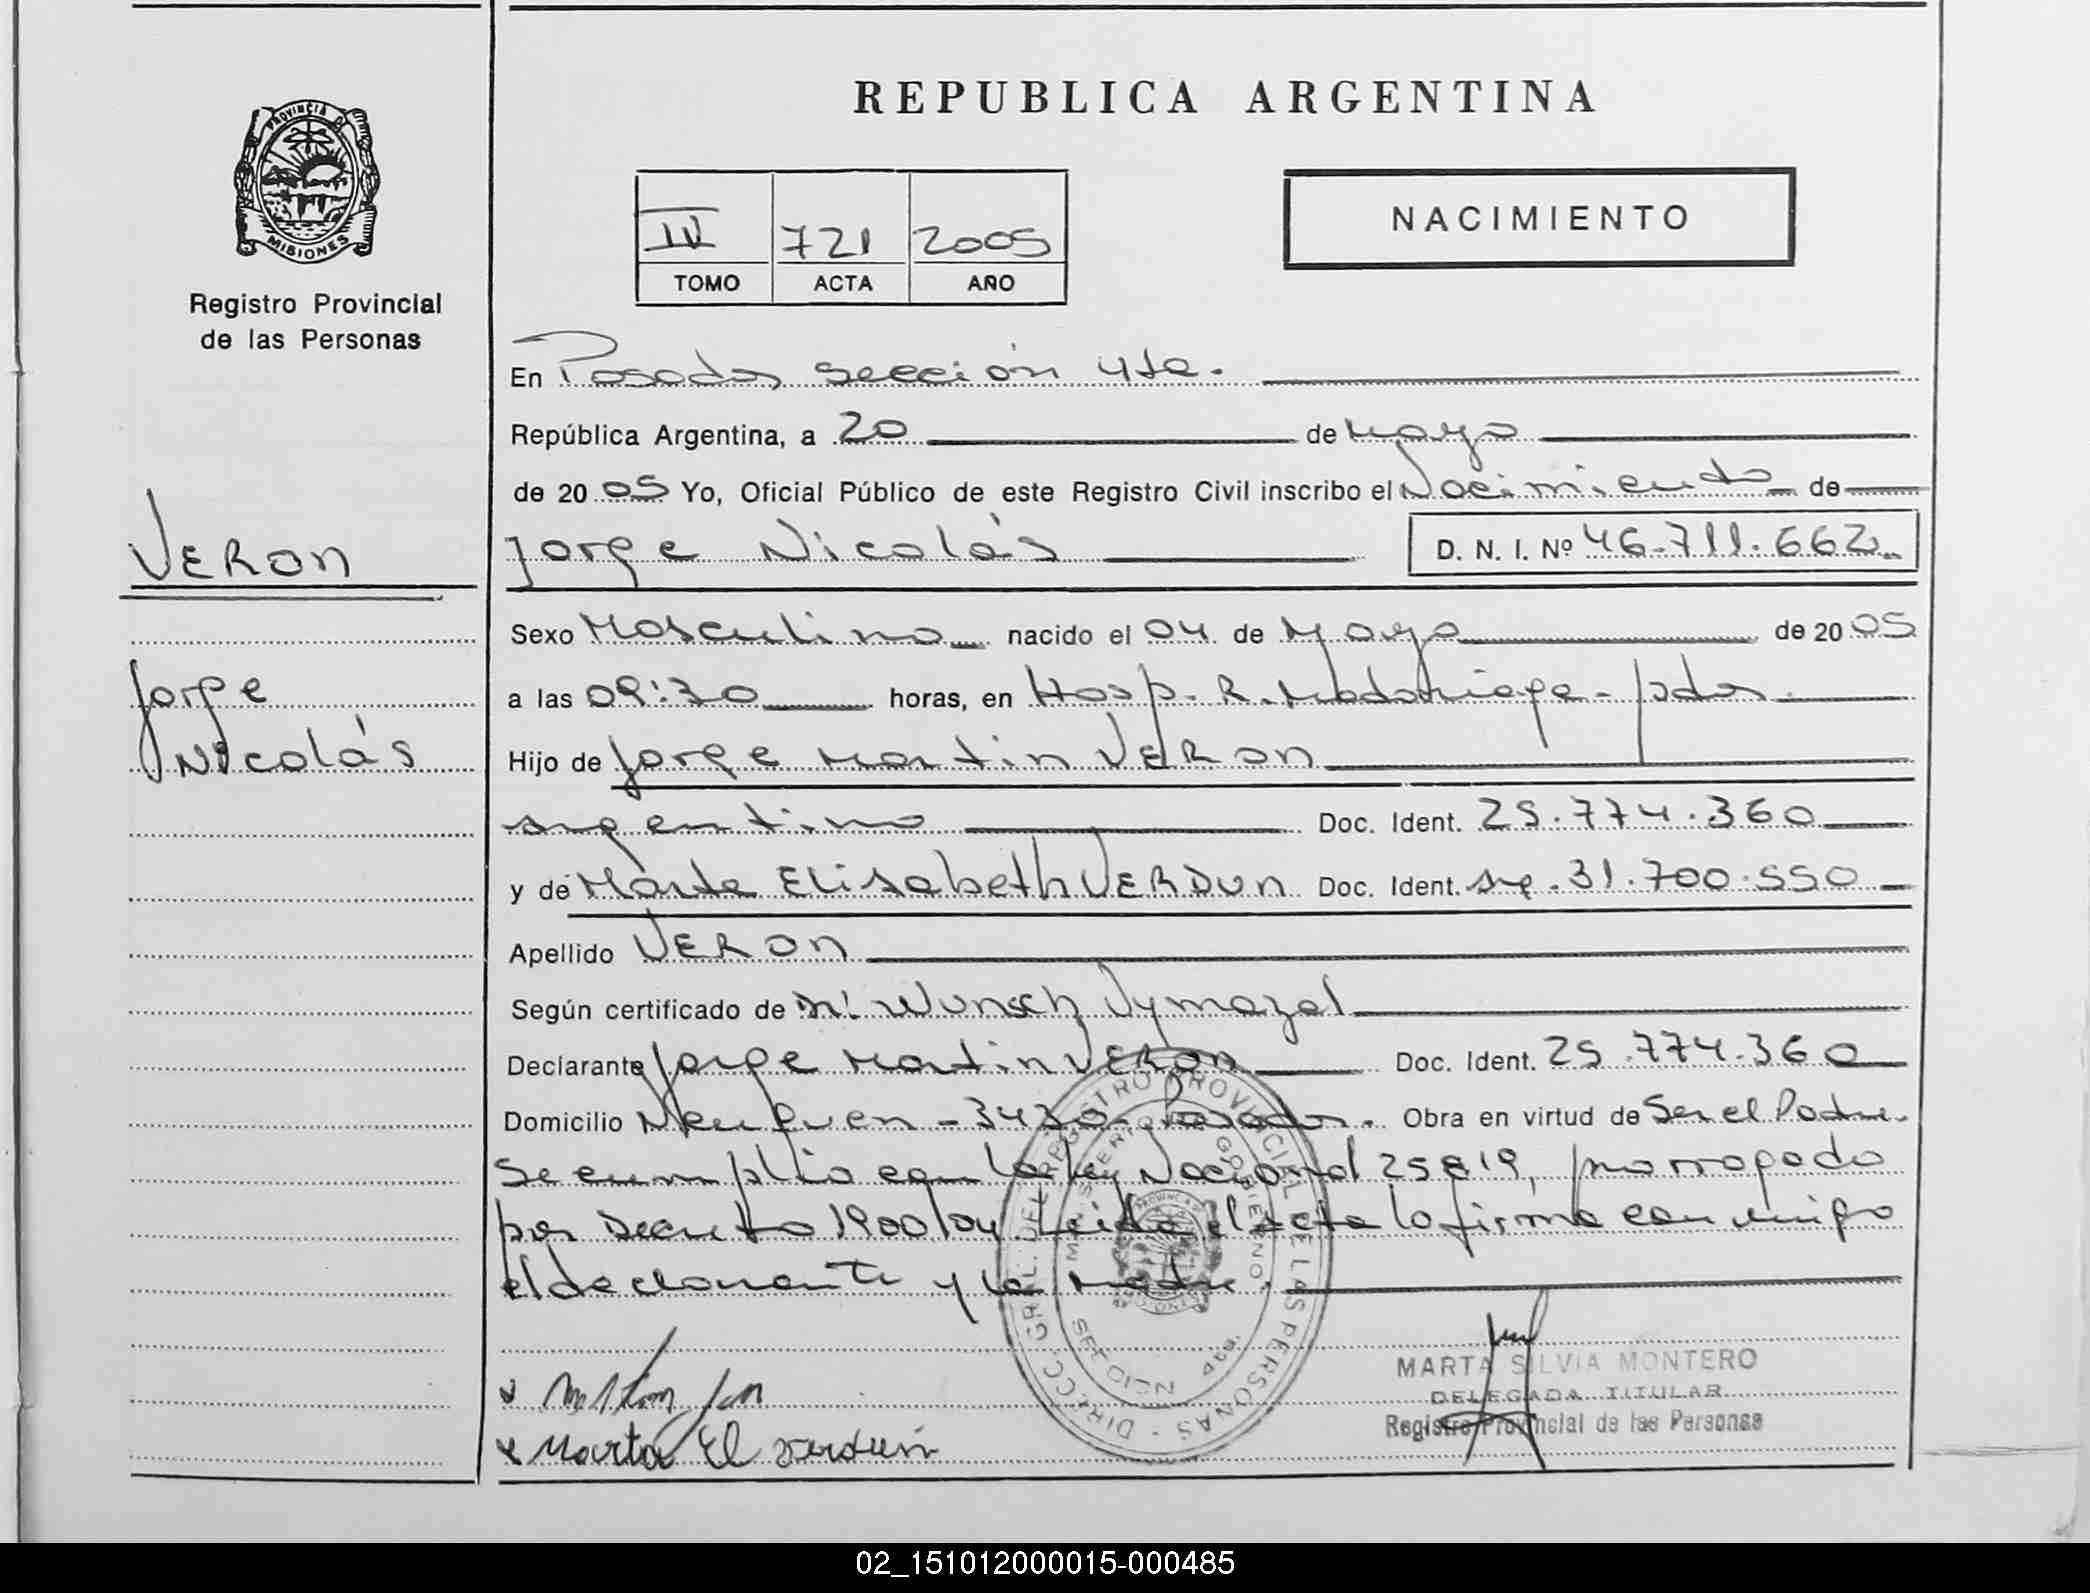 REPUBLICA ARGENTINA
PROVINCIA DE
MISIONES
Registro Provincial
de las Personas
IV 721 2005
TOMO ACTA AÑO
NACIMIENTO
En Posadas sección 4ta.
República Argentina, a 20 de Mayo
de 2005 Yo, Oficial Público de este Registro Civil inscribo el Nacimiento de
VERON
Jorge Nicolás D. N. I. Nº 46.711.662
Sexo Masculino nacido el 04 de Mayo de 2005
Jorge
Nicolás
a las 09:30 horas, en Hosp. R. Madariaga - Pdas.
Hijo de Jorge Martin VERON
argentino Doc. Ident. 25.774.360
y de Marta Elisabeth VERDUN Doc. Ident. arg. 31.700.550
Apellido VERON
Según certificado de Wunsch Vymazal
Declarante Jorge Martin VERON Doc. Ident. 25.774.360
Domicilio Neuquen - 3430 - Posadas. Obra en virtud de Ser el Padre.
Se cumplio con la ley Nacional 25819, prorrogado
por Decreto 1900/04. Leida el acta la firma conmigo
el declarante y la madre.
DIR. GRAL. DEL REGISTRO PROVINCIAL DE LAS PERSONAS
MINISTERIO DE GOBIERNO
SECCION 4ta.
MARTA SILVIA MONTERO
DELEGADA TITULAR
Registro Provincial de las Personas
Marta El Verdun
02_151012000015-000485